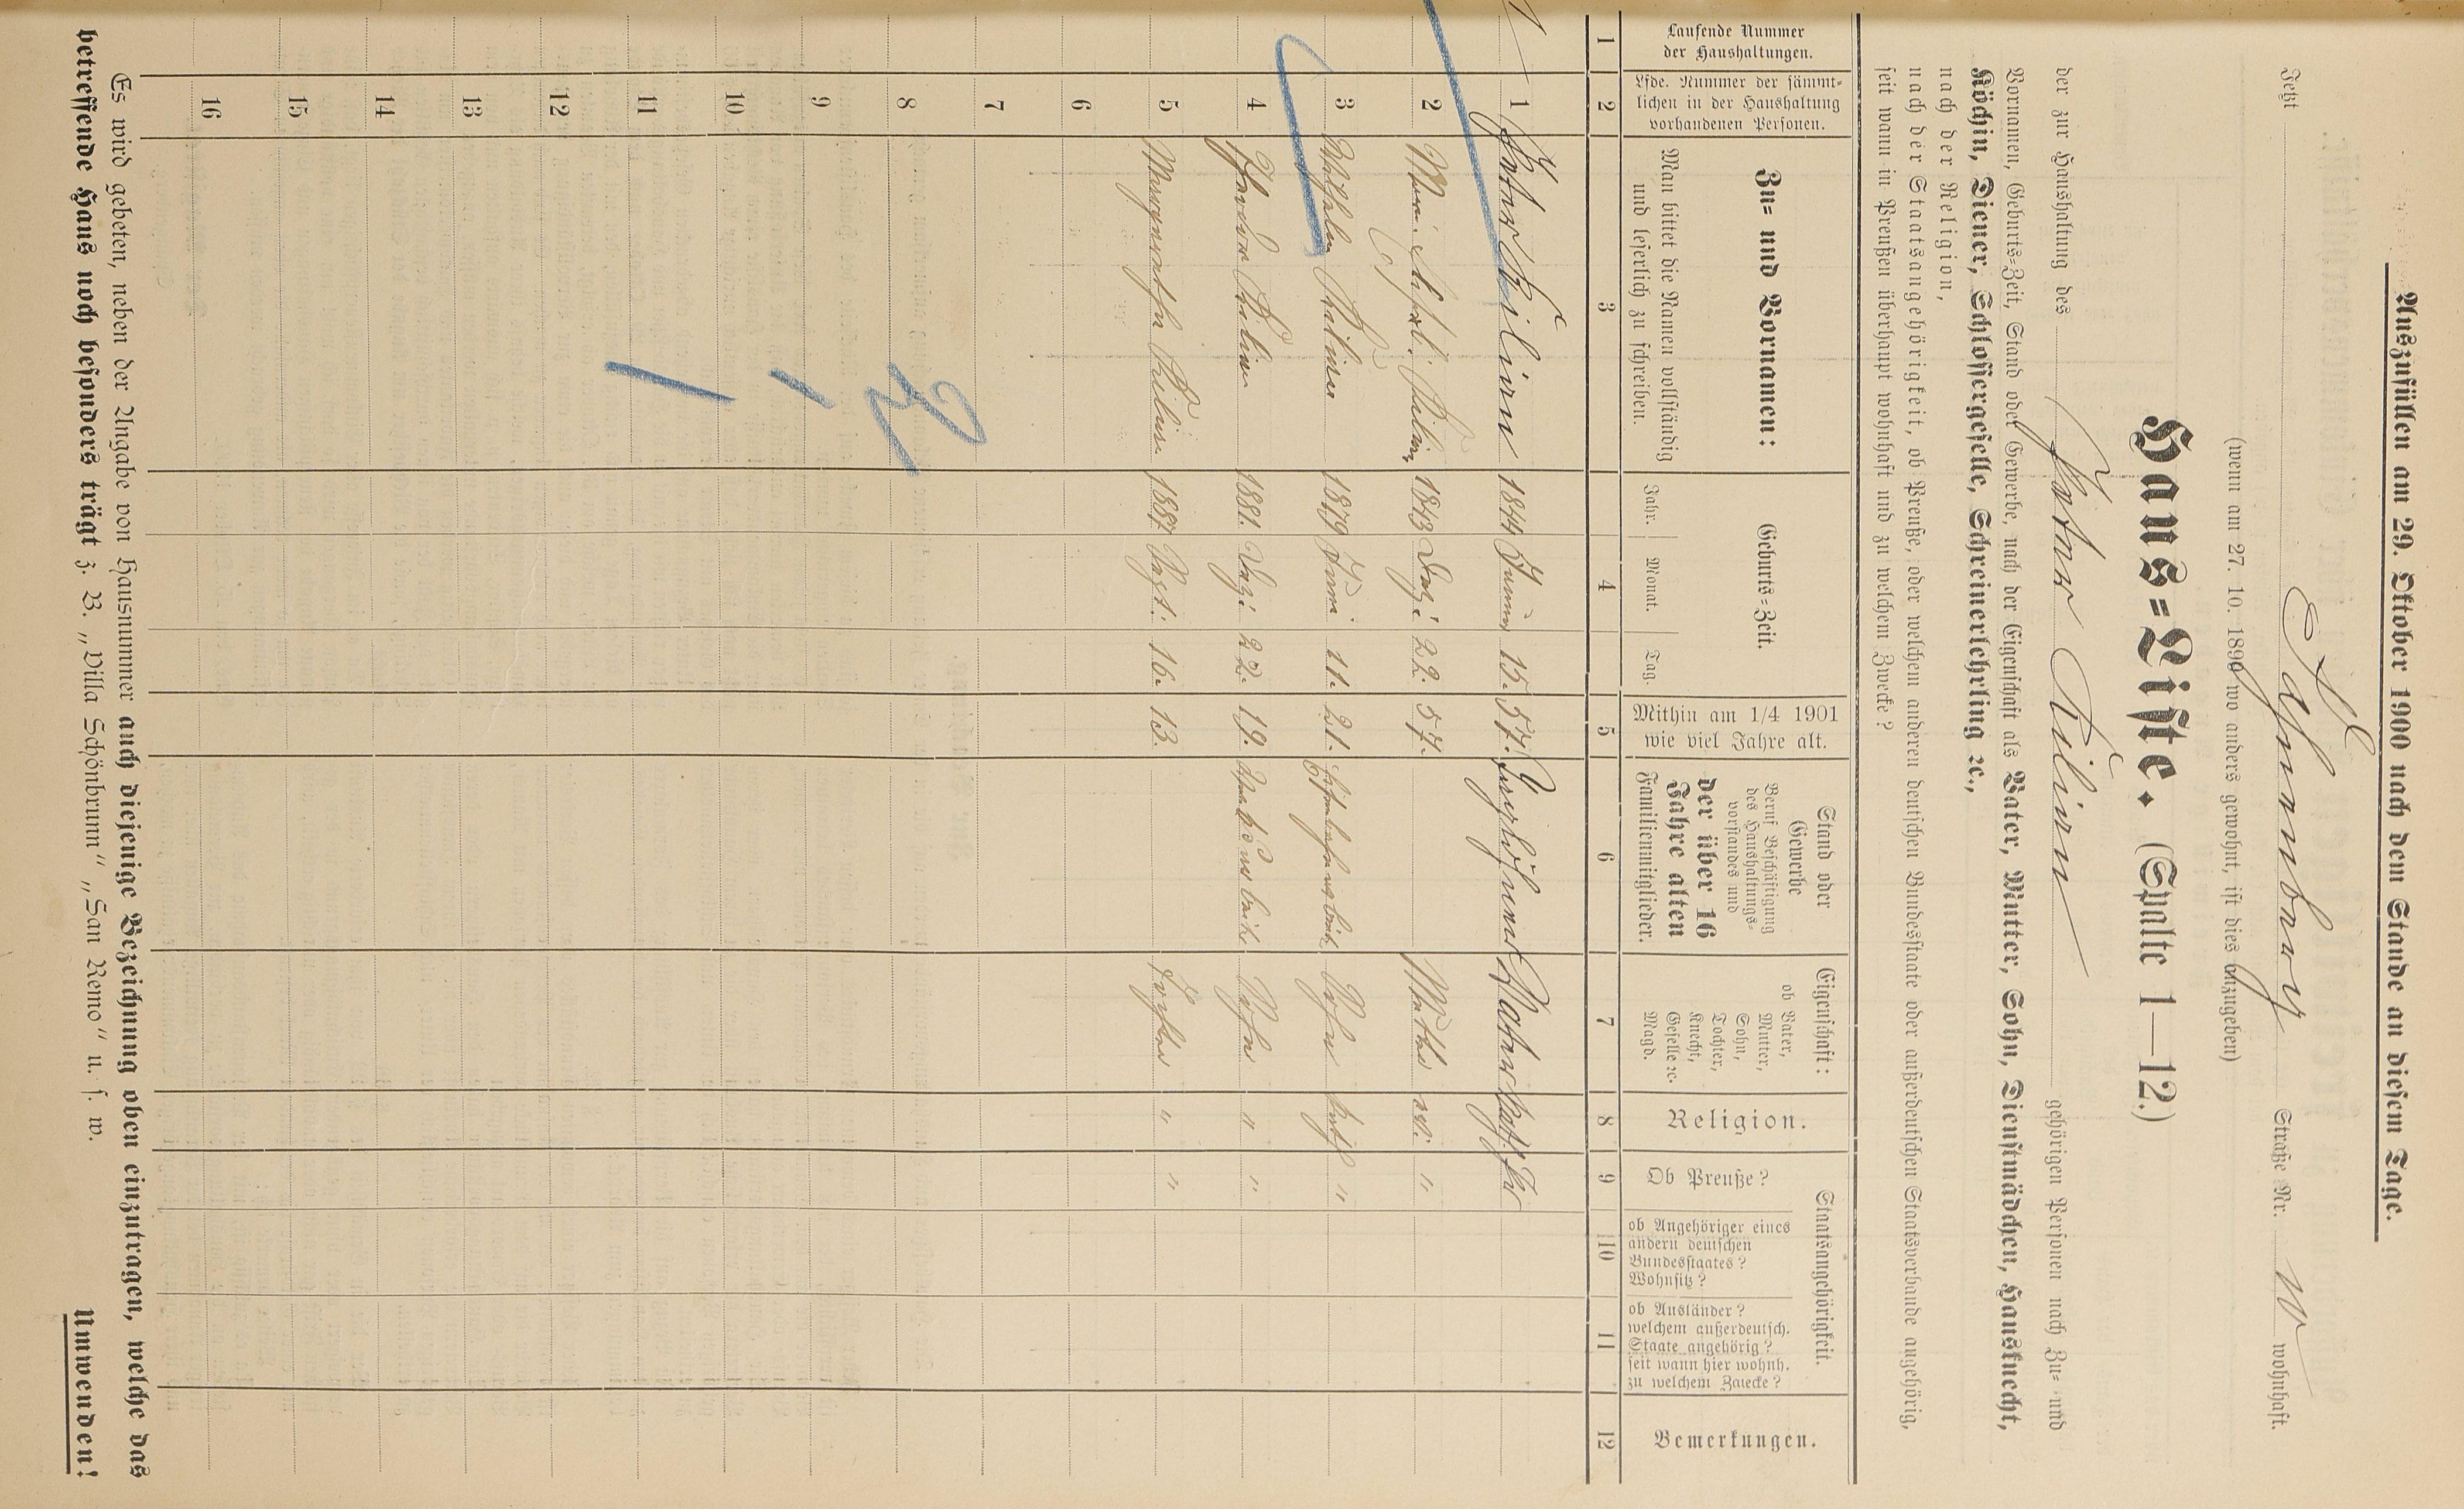 Auszufüllen am 29. Oktober 1900 nach dem Stande an diesem Tage.
Jetzt Straße Nr. wohnhaft.
(wenn am 27. 10. 1899 wo anders gewohnt, ist dies anzugeben)
Haus-Liste. (Spalte 1—12.)
der zur Haushaltung des Peter Kilian gehörigen Personen nach Zu- und
Vornamen, Geburts-Zeit, Stand oder Gewerbe, nach der Eigenschaft als Vater, Mutter, Sohn, Dienstmädchen, Hausknecht,
Köchin, Diener, Schlossergeselle, Schreinerlehrling ꝛc.,
nach der Religion,
nach der Staatsangehörigkeit, ob Preuße, oder welchem anderen deutschen Bundesstaate oder außerdeutschen Staatsverbande angehörig,
seit wann in Preußen überhaupt wohnhaft und zu welchem Zwecke?
Laufende Nummer
der Haushaltungen.
Lfde. Nummer der sämmt-
lichen in der Haushaltung
vorhandenen Personen.
Zu- und Vornamen:
Man bittet die Namen vollständig
und leserlich zu schreiben.
Geburts-Zeit.
Jahr. Monat. Tag.
Mithin am 1/4 1901
wie viel Jahre alt.
Stand oder
Gewerbe
Beruf Beschäftigung
des Haushaltungs-
vorstandes und
der über 16
Jahre alten
Familienmitglieder.
Eigenschaft:
ob Vater,
Mutter,
Sohn,
Tochter,
Knecht,
Geselle ꝛc.
Magd.
Religion.
Staatsangehörigkeit.
Ob Preuße?
ob Angehöriger eines
andern deutschen
Bundesstaates?
Wohnsitz?
ob Ausländer?
welchem außerdeutsch.
Staate angehörig?
seit wann hier wohnh.
zu welchem Zwecke?
Bemerkungen.
1 2 3 4 5 6 7 8 9 10 11 12
1 1 Peter Kilian 1844 15. 57. Vater kath. Pr
2 Kilian 1843 Dez. 22. 57. Mutter ev. "
3 Wilhelm Kilian 1879 Juni 11. 21. Sohn kath "
4 Theodor Kilian 1881. Dez. 22. 19. Sohn " "
5 Margarethe Kilian 1887. Sept. 16. 13. Tochter " "
6
7
8
9
10
11
12
13
14
15
16
Es wird gebeten, neben der Angabe von Hausnummer auch diejenige Bezeichnung oben einzutragen, welche das
betreffende Haus noch besonders trägt z. B. „Villa Schönbrunn“ „San Remo“ u. s. w. Umwenden!